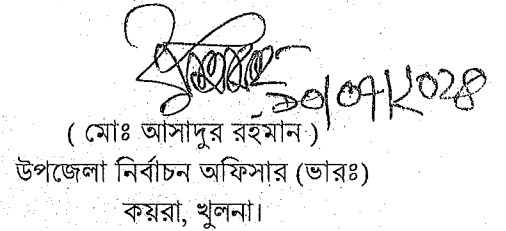 ১০/০৭/২০২৪
( মোঃ আসাদুর রহমান )
উপজেলা নির্বাচন অফিসার (ভারঃ)
কয়রা, খুলনা।